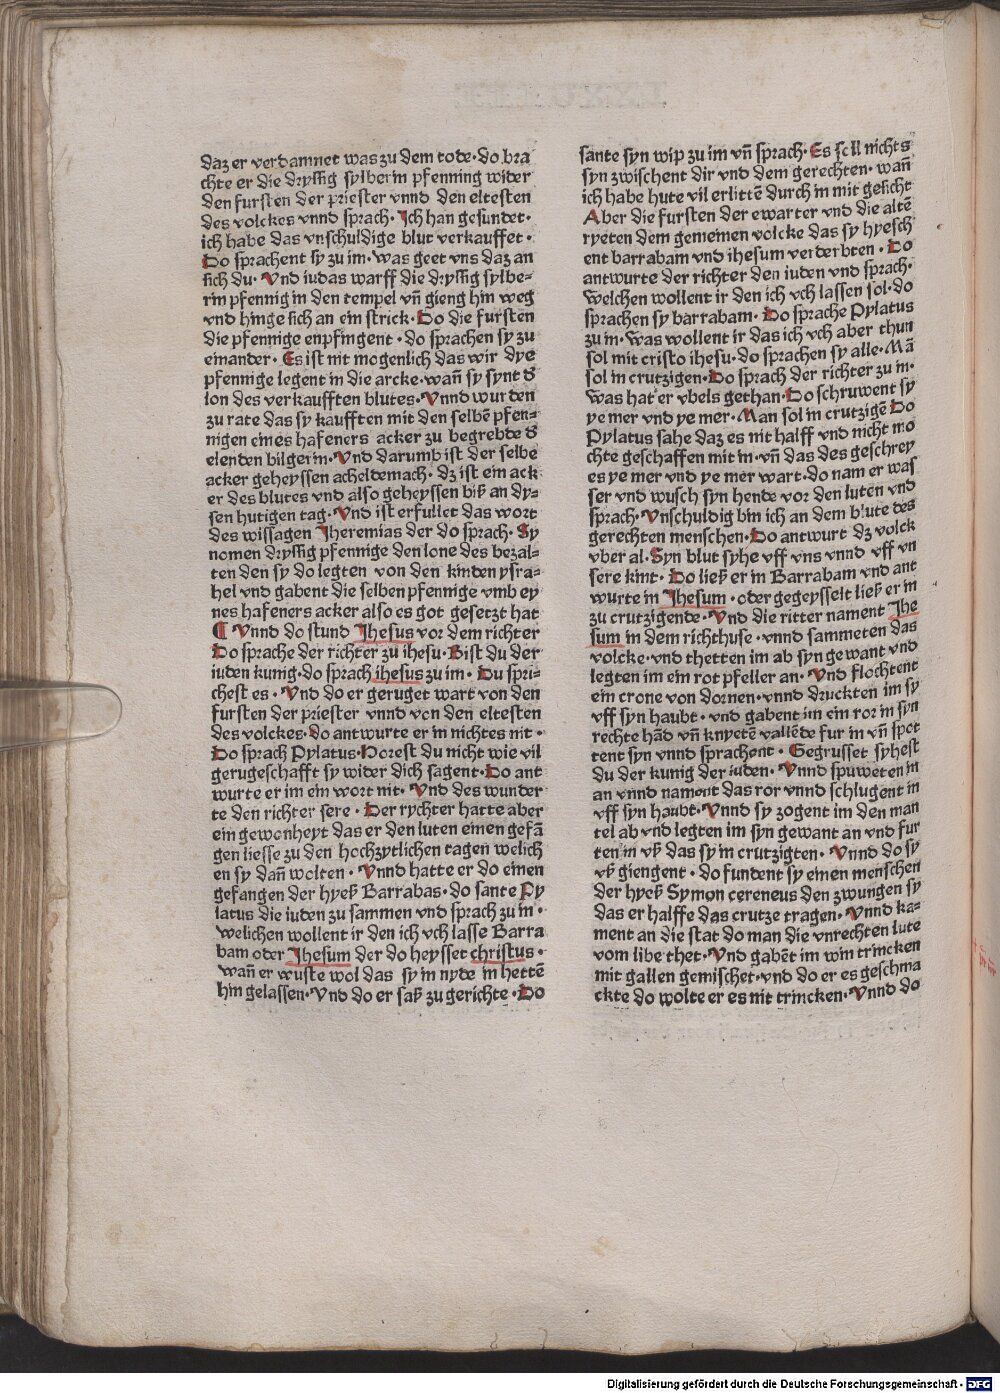 daz er verdamnet was zu dem tode· do bra
chte er die dryssig sylberin pfenning wider
den fursten der priester vnnd den eltesten
des volckes vnnd sprach· Ich han gesundet·
ich habe das vnschuldige blut verkauffet·
Do sprachent sy zu im· was geet vns daz an
sich du· Vnd iudas warff die dryssig sylbe-
rin pfennig in den tempel vn̄ gieng hin weg
vnd hinge sich an ein strick· Do die fursten
die pfennige enpfingent· do sprachen sy zu
einander· Es ist nit mogenlich das wir dye
pfennige legent in die arcke· wan̄ sy synt d̕
lon des verkaufften blutes· Vnnd wurden
zu rate das sy kaufften mit den selbē pfen-
nigen eines hafeners acker zu begrebde d̕
elenden bilgerin· Vnd darumb ist der selbe
acker geheyssen acheldemach· dz ist ein ack
er des blutes vnd also geheyssen biß an dy-
sen hutigen tag· Vnd ist erfullet das wort
des wissagen Jheremias der do sprach· Sy
nomen dryssig pfennige den lone des bezal-
ten den sy do legten von den kinden ysra-
hel vnd gabent die selben pfennige vmb ey
nes hafeners acker also es got gesetzt hat
¶ Vnnd do stund Jhesus vor dem richter
Do sprache der richter zu ihesu· Bist du der
iuden kunig· do sprach ihesus zu im· Du spri-
chest es· Vnd do er geruget wart von den
fursten der priester vnnd von den eltesten
des volckes· do antwurte er in nichtes nit·
Do sprach Pylatus· Horest du nicht wie vil
gerugeschafft sy wider dich sagent· Do ant
wurte er im ein wort nit· Vnd des wunder
te den richter sere· Der rychter hatte aber
ein gewonheyt das er den luten einen gefā
gen liesse zu den hochzytlichen tagen welich
en sy dan̄ wolten· Vnnd hatte er do einen
gefangen der hyeß Barrabas· do sante Py
latus die iuden zu sammen vnd sprach zu in·
welichen wollent ir den ich vch lasse Barra
bam oder Jhesum der do heysset christus·
wan̄ er wuste wol das sy in nyde in hettē
hin gelassen· Vnd do er saß zu gerichte· Do
sante syn wip zu im vn̄ sprach· Es soll nichts
syn zwischent dir vnd dem gerechten· wan̄
ich habe hute vil erlittē durch in mit gesicht
Aber die fursten der ewarter vnd die altē
ryeten dem gemeinen volcke das sy hyesch
ent barrabam vnd ihesum verderbten· Do
antwurte der richter den iuden vnd sprach·
Welchen wollent ir den ich vch lassen sol· do
sprachen sy barrabam· Do sprache Pylatus
zu in· Was wollent ir das ich vch aber thun
sol mit cristo ihesu· do sprachen sy alle· Mā
sol in crutzigen· Do sprach der richter zu in·
Was hat er vbels gethan· Do schruwent sy
ye mer vnd ye mer· Man sol in crutzigē Do
Pylatus sahe daz es nit halff vnd nicht mo
chte geschaffen mit in· vn̄ das des geschrey
es ye mer vnd ye mer wart· do nam er was
ser vnd wusch syn hende vor den luten vnd
sprach· Vnschuldig bin ich an dem blute des
gerechten menschen· Do antwurt dz volck
vber al· Syn blut syhe vff vns vnnd vff vn
sere kint· Do ließ er in Barrabam vnd ant
wurte in Jhesum· oder gegeysselt ließ er in
zu crutzigende· Vnd die ritter nament Jhe
sum in dem richthuse· vnnd sammeten das
volcke· vnd thetten im ab syn gewant vnd
legten im ein rot pfeller an· Vnd flochtent
ein crone von dornen· vnnd druckten im sy
vff syn haubt· vnd gabent im ein ror in syn
rechte hād vn̄ knyetē vallēde fur in vn̄ spot
tent syn vnnd sprachent· Gegrusset syhest
du der kunig der iuden· Vnnd spuweten in
an vnnd nament das ror vnnd schlugent in
vff syn haubt· Vnnd sy zogent im den man
tel ab vnd legten im syn gewant an vnd fur
ten in vß das sy in crutzigten· Vnnd do sy
vß giengent· do fundent sy einen menschen
der hyeß Symon cereneus den zwungen sy
das er halffe das crutze tragen· Vnnd ka-
ment an die stat do man die vnrechten lute
vom libe thet· Vnd gabēt im win trincken
mit gallen gemischet· vnd do er es geschma
ckte do wolte er es nit trincken· Vnnd do
Digitalisierung gefördert durch die Deutsche Forschungsgemeinschaft - DFG